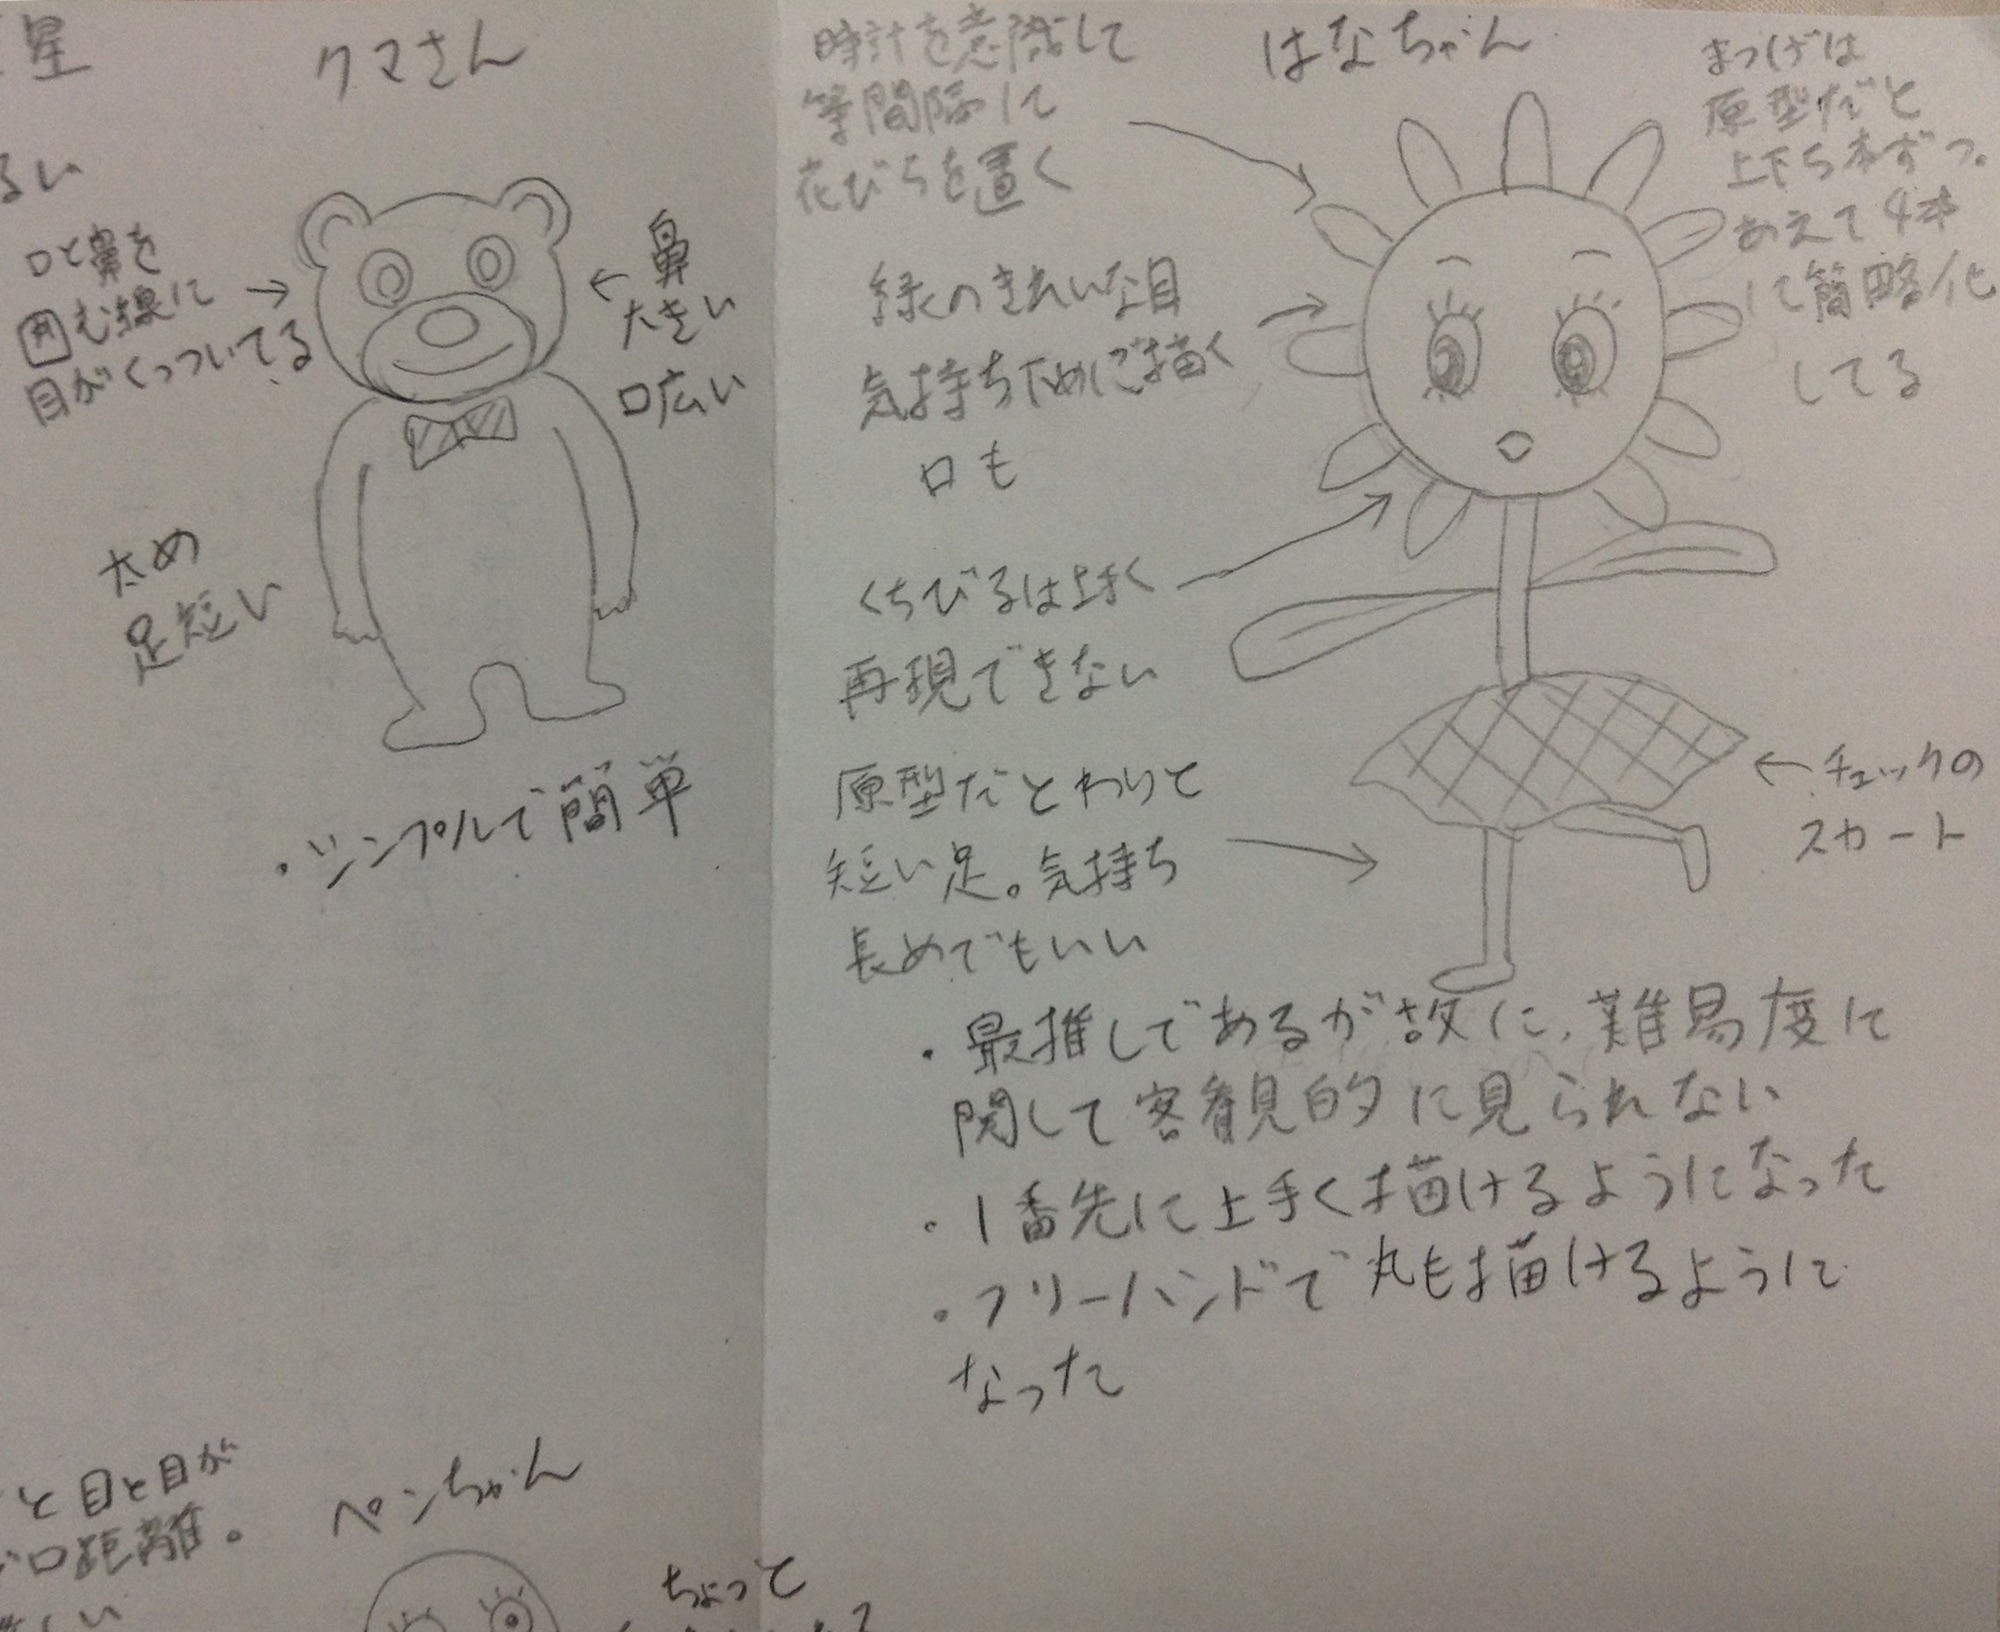 星
るい
クマさん
口と鼻を
囲む線に
目がくっついてる
鼻
大きい
口広い
太め
足短い
・シンプルで簡単
はなちゃん
時計を意識して
等間隔に
花びらを置く
まつげは
原型だと
上下5本ずつ。
あえて4本
に簡略化
してる
緑のきれいな目
気持ち下めに描く
口も
くちびるは上手く
再現できない
原型だとわりと
短い足。気持ち
長めでもいい
チェックの
スカート
・最推しであるが故に、難易度に
関して客観的に見られない
・1番先に上手く描けるようになった
・フリーハンドで丸も描けるように
なった
と目と目が
口距離。
しい
ペンちゃん
ちょっと